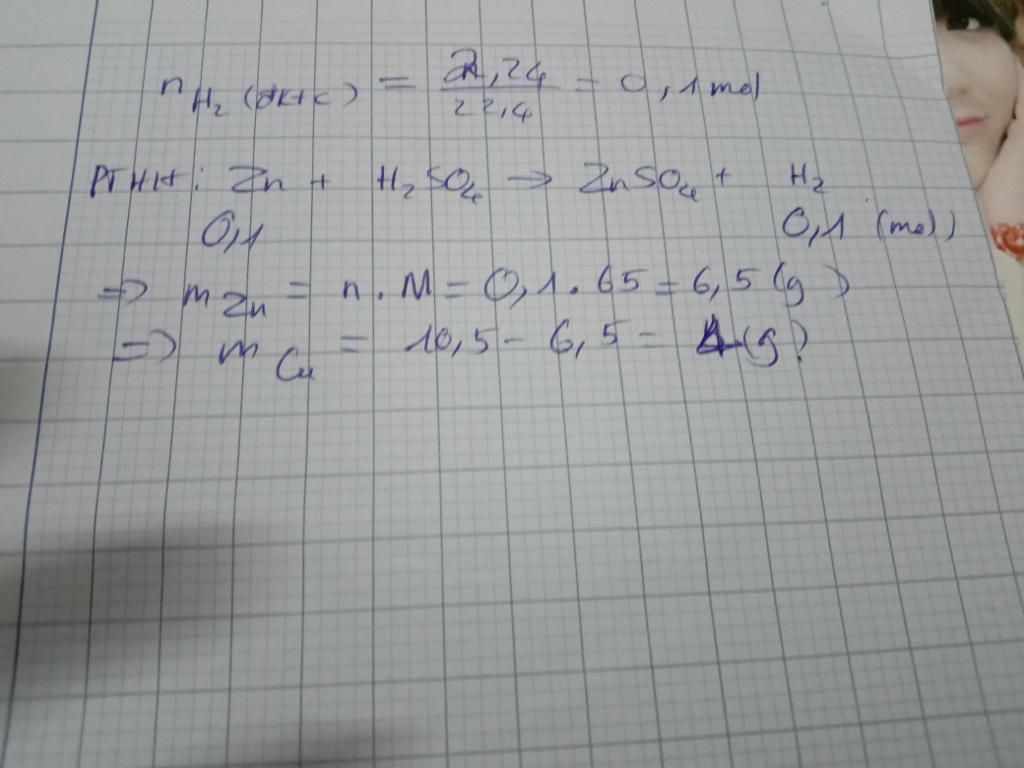 n H₂ (đktc) = 2,24/22,4 = 0,1 mol
PTHH: Zn + H₂SO₄ → ZnSO₄ + H₂
0,1 0,1 (mol)
=> m Zn = n . M = 0,1 . 65 = 6,5 (g)
=> m Cu = 10,5 - 6,5 = 4 (g)